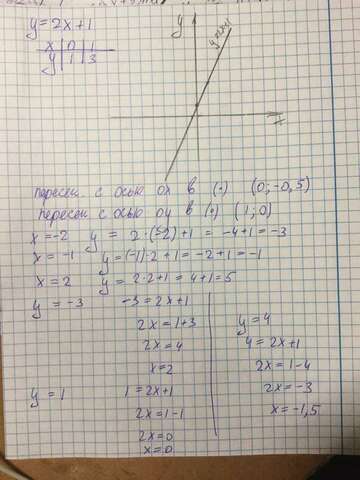 y=2x+1
x | 0 | 1
y | 1 | 3
y
y=2x+1
x
пересеч. с осью ox в (·) (0;-0,5)
пересеч с осью oy в (·) (1;0)
x=-2 y = 2·(-2)+1 = -4+1=-3
x = -1 y=(-1)·2+1=-2+1=-1
x=2 y=2·2+1=4+1=5
y = -3 -3=2x+1
2x=1+3
2x=4
x=2
y=1 1=2x+1
2x=1-1
2x=0
x=0
y=4
4=2x+1
2x=1-4
2x=-3
x=-1,5